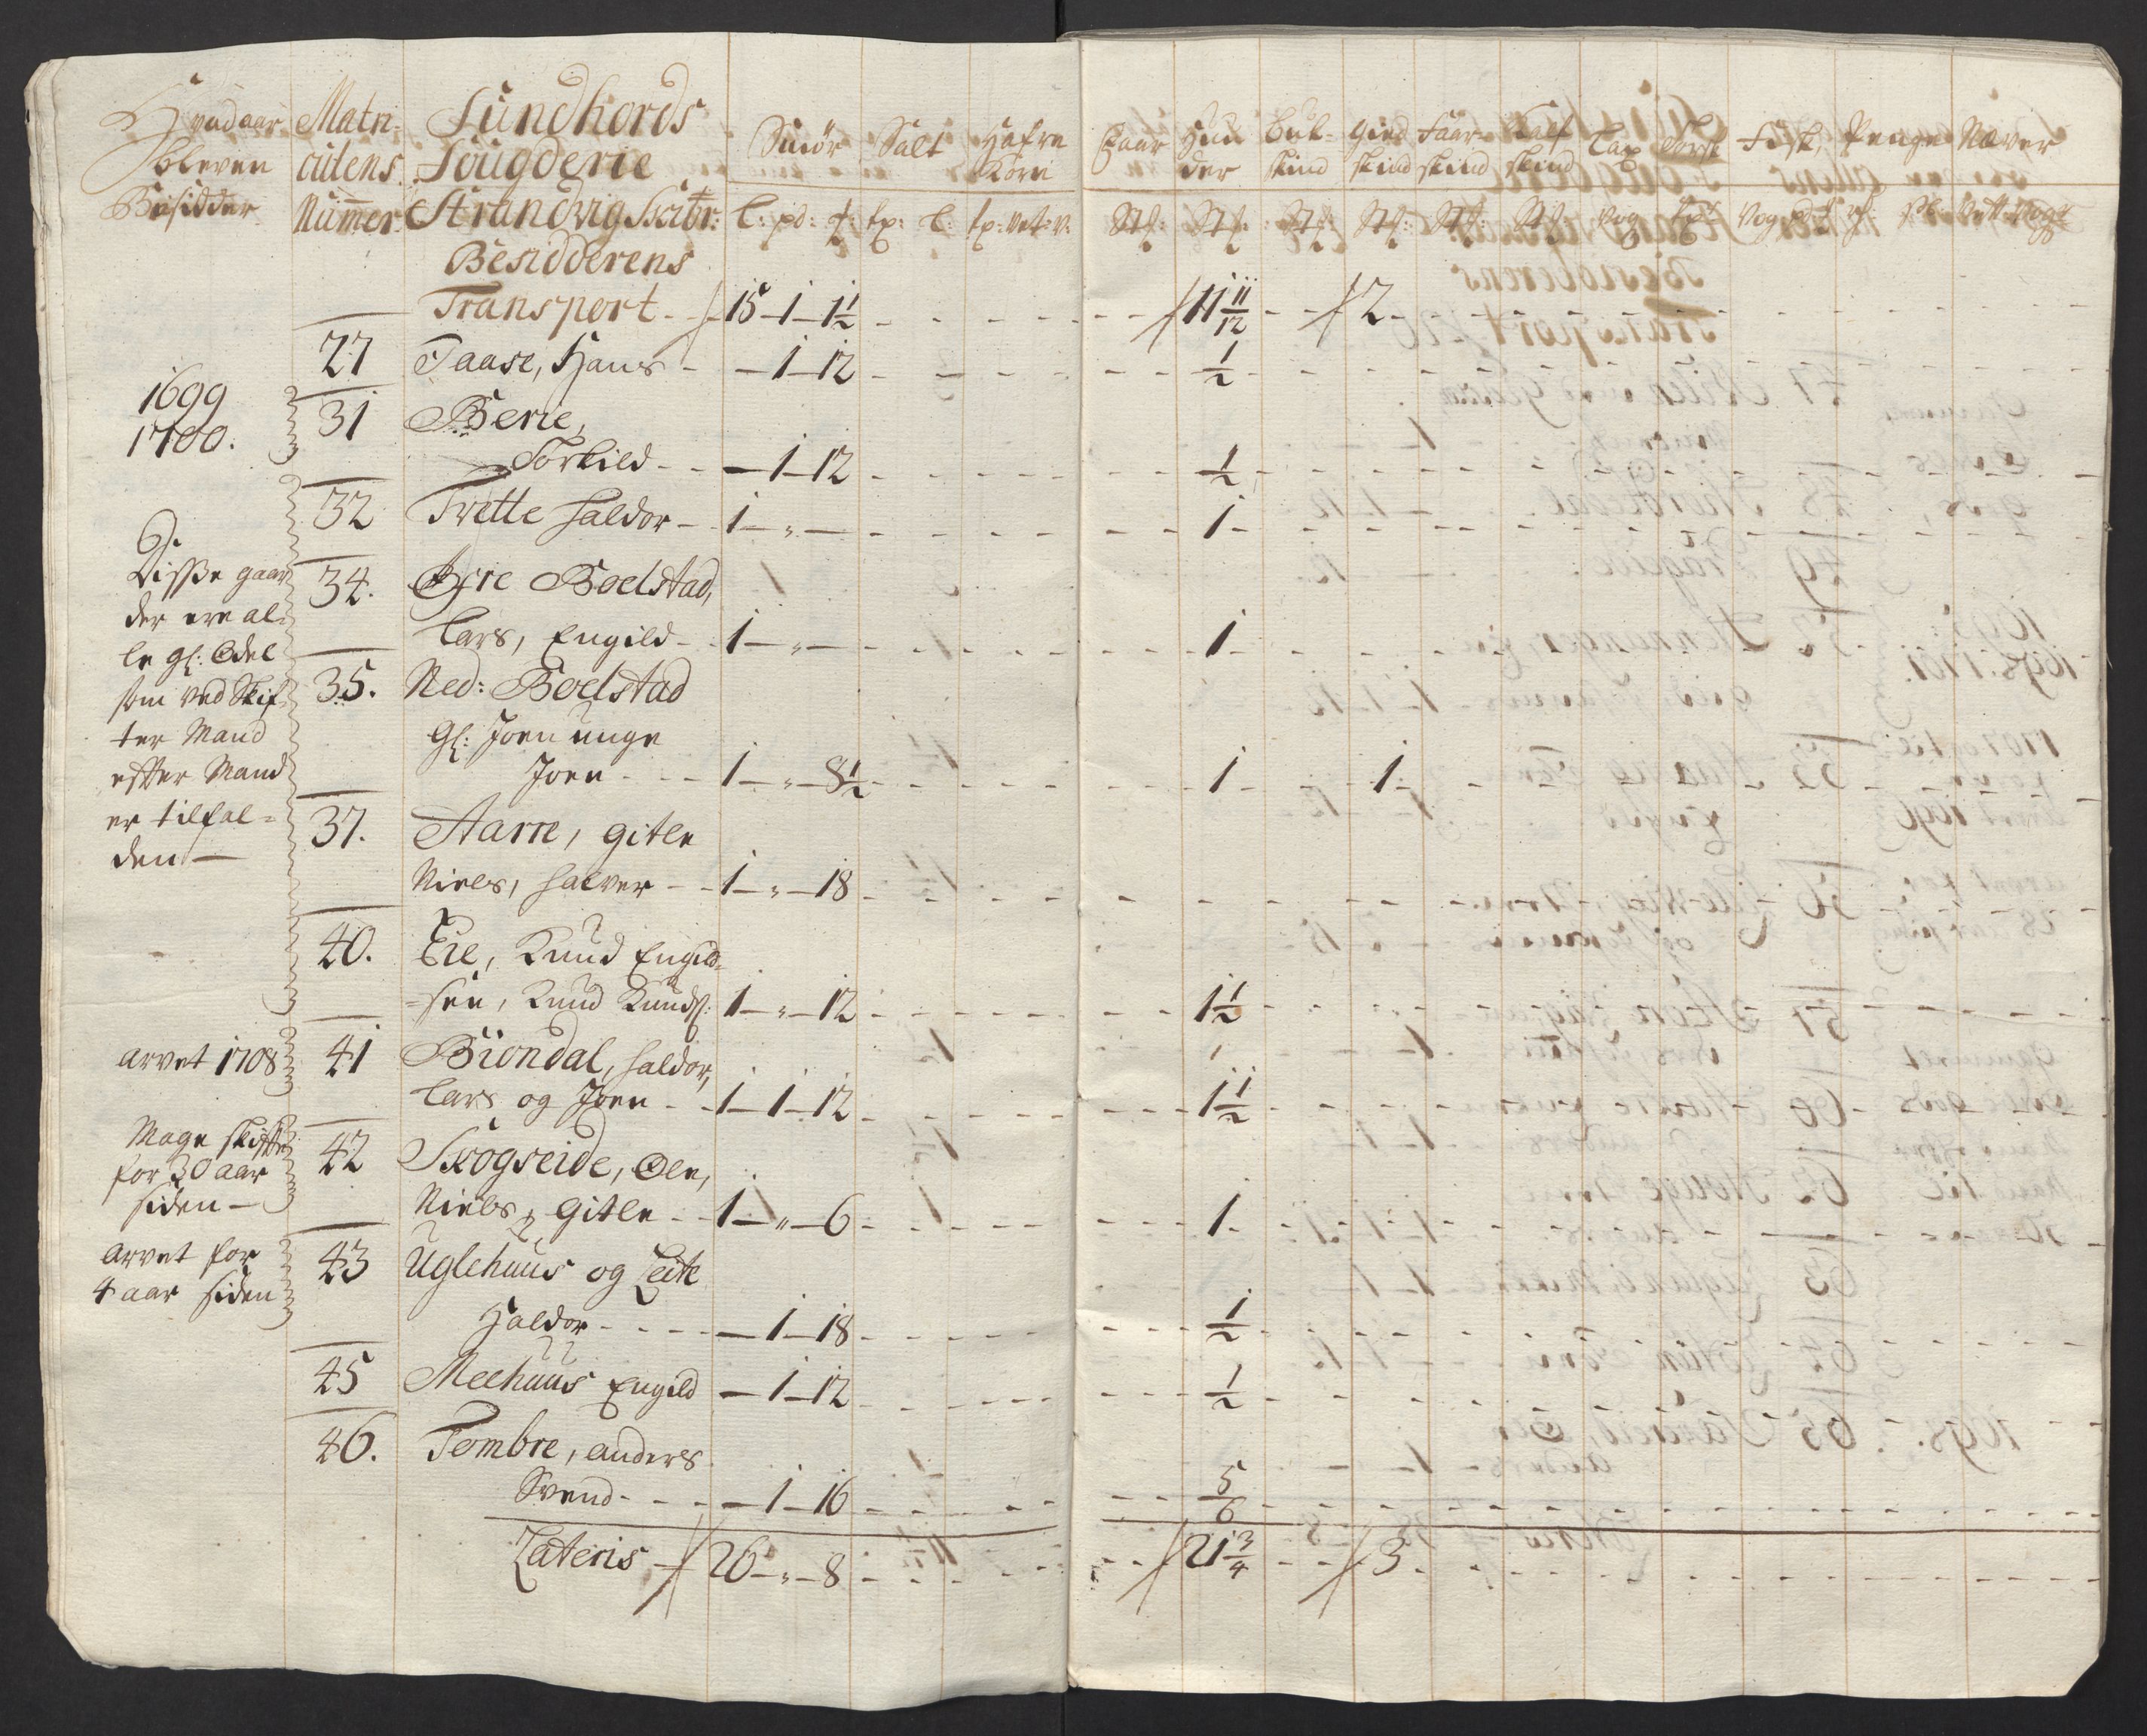 Hvad aar
bleven
Besidder
Matri=
culens
Nummer
Sundhords
Fougderie
Strandvig Skibr:
Besidderens
Smør Salt Hafre
Korn
L: pd: ℔: tp: L: tp: Vet: v:
Huu
der Buk-
skind Gied
skind Faar
skind Kalf
skind Lax Torsk Fisk, Penge Næver
Transport - 15 - 1 - 1 1/2 - 11 11/12 - 2
27 Taase, Hans - 1 - 12 - 1/2
1699
1700.
31 Berie,
Torkild - - 1 - 12 - 1/2
32 Tvette Haldor - 1 - " - 1
Disse gaar
der ere al-
le gl: Odel
som ved Skif-
ter Mand
efter Mand
er tilfal=
den -
34. Øfre Boelstad,
Lars, Engild - 1 - " - 1
35. Ned: Boelstad
Gl: Joen unge
Joen - - - 1 - " - 8 1/2 - 1 - 1
37. Aarre, Gitle
Niels, Halver - - 1 - " - 18
40. Eie, Knud Engild=
=sen, Knud Knuds: 1 - " - 12 - 1 1/2
arvet 1708
41 Biondal, Haldor,
Lars og Joen - - 1 - 1 - 12 - 1 1/2
Mage skifte
for 30 aar
siden -
42 Skogseide, Ole,
Niels, Gitle - - 1 - " - 6 - 1
arvet for
4 aar siden
43 Uglehuus og Leite
Haldor - - - - 1 - 18 - 1/2
45 Meehuus Engild - 1 - 12 - 1/2
46. Tombre, anders
Svend - - - - 1 - 16 - 5/6
Lateris - 26 - " - 8 - 21 3/4 - 3